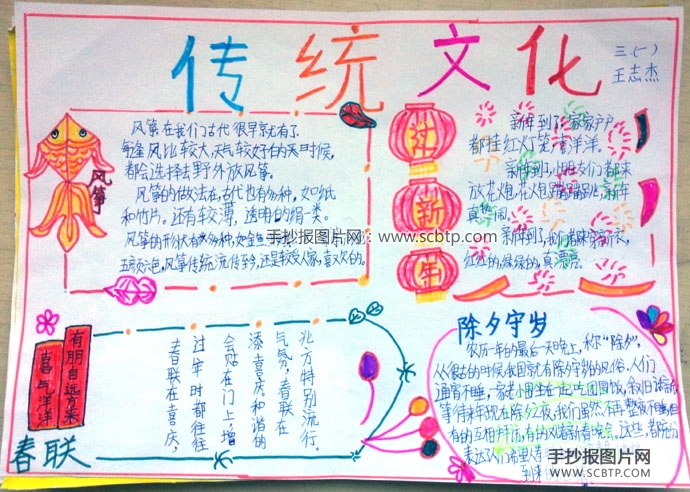 传统文化
三(一)
王志杰
风筝
风筝在我们古代很早就有了
每逢风比较大,天气较好的时候,
都会选择去野外放风筝。
风筝的做法在古代也有多种,如纸
和竹片,还有较薄,透明的绢类。
风筝的形状有多种,如金鱼
五颜六色,风筝传统流传至今,还是较受人喜欢的。
手抄报图片网:www.scbtp.com
过新年
新年到了,家家户户
都挂红灯笼,喜洋洋。
新年到了,小朋友们都来
放花炮,花炮蹦蹦跳,新年
真热闹。
新年到了,我们都来穿新衣,
红红的,绿绿的,真漂亮。
有朋自远方来
喜气洋洋
春联
春联在喜庆,
过年时都往往
会贴在门上增
添喜庆和谐的
气氛,春联在
北方特别流行。
除夕守岁
农历一年的最后一天晚上,称“除夕”,
从很古的时候我国就有除夕守岁的风俗。人们
通宵不睡,家老小围坐在一起吃团圆饭,叙旧话新
等待来年现在除夕之夜,我们虽然不再整夜不睡,但
有的互相拜访,有的观看新春晚会,这些都充分
表达了人们希望
到来
手抄报图片网
WWW.SCBTP.COM